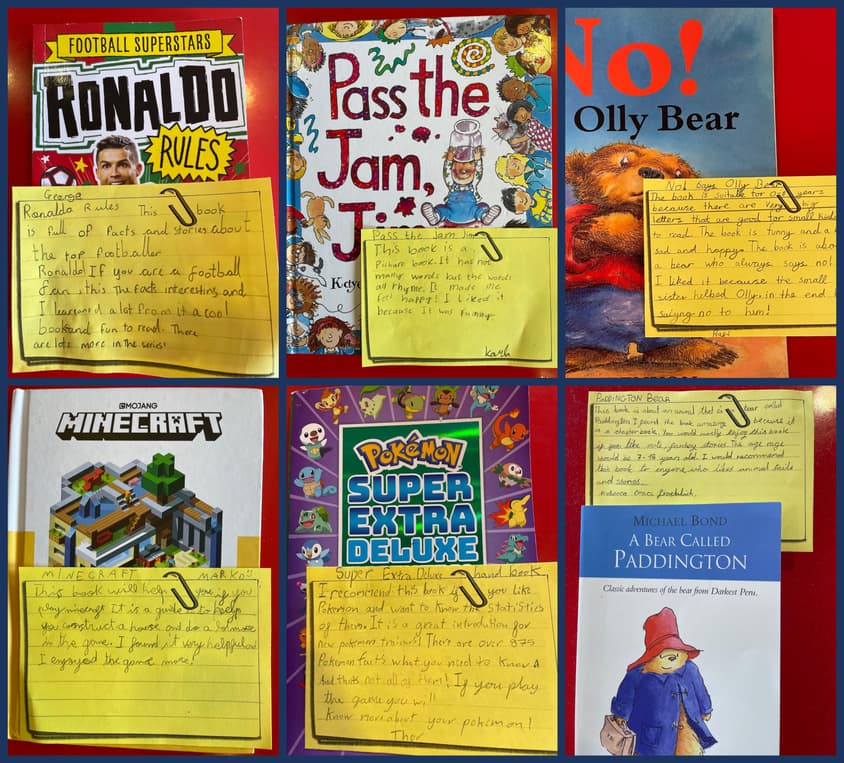 FOOTBALL SUPERSTARS
RONALDO
RULES
George
Ronaldo Rules This book
is full of facts and stories about
the top footballer
Ronaldo! If you are a football
fan, this The facts interesting and
I learned a lot from it a cool
book and fun to read. There
are lots more in the series!
Pass the
Jam,
J
Kaye
Pass the Jam Jim
This book is a
Picture book. It has not
many words but the words
all rhyme. It made me
feel happy! I liked it
because it was funny.
No!
Olly Bear
No! says Olly Bear
The book is suitable for years
because there are very big
letters that are good for small kids
to read. The book is funny and a
sad and happy. The book is abo
a bear who always says no!
I liked it because the small
sister helped Olly in the end
saying no to him!
@MOJANG
MINECRAFT
MINECRAFT MARKO
This book will help you if you
play minecraft It is a guide
you construct a house and do a lot more
in the game. I found it very helpful and
I enjoyed the game more!
POKéMON
SUPER
EXTRA
DELUXE
Super Extra Deluxe hand book
I recommend this book if you like
Pokemon and want to know the statistics
of them. It is a great introdution for
new pokemon trainers! There are over 875
Pokemon facts what you need to know
And thats not all of them! If you play
the game you will
know more about your pokimon!
Thor
PADDINGTON BEAR
This book is about an animal that is bear called
Paddington I found the book amazing because it
is a chapter book. You would really enjoy this book
if you like fantasy stories. The age rage
would be 7-18 year old. I would recommend
that book to anyone who likes animal
and stories.
Rebecca
MICHAEL BOND
A BEAR CALLED
PADDINGTON
Classic adventures of the bear from Darkest Peru.